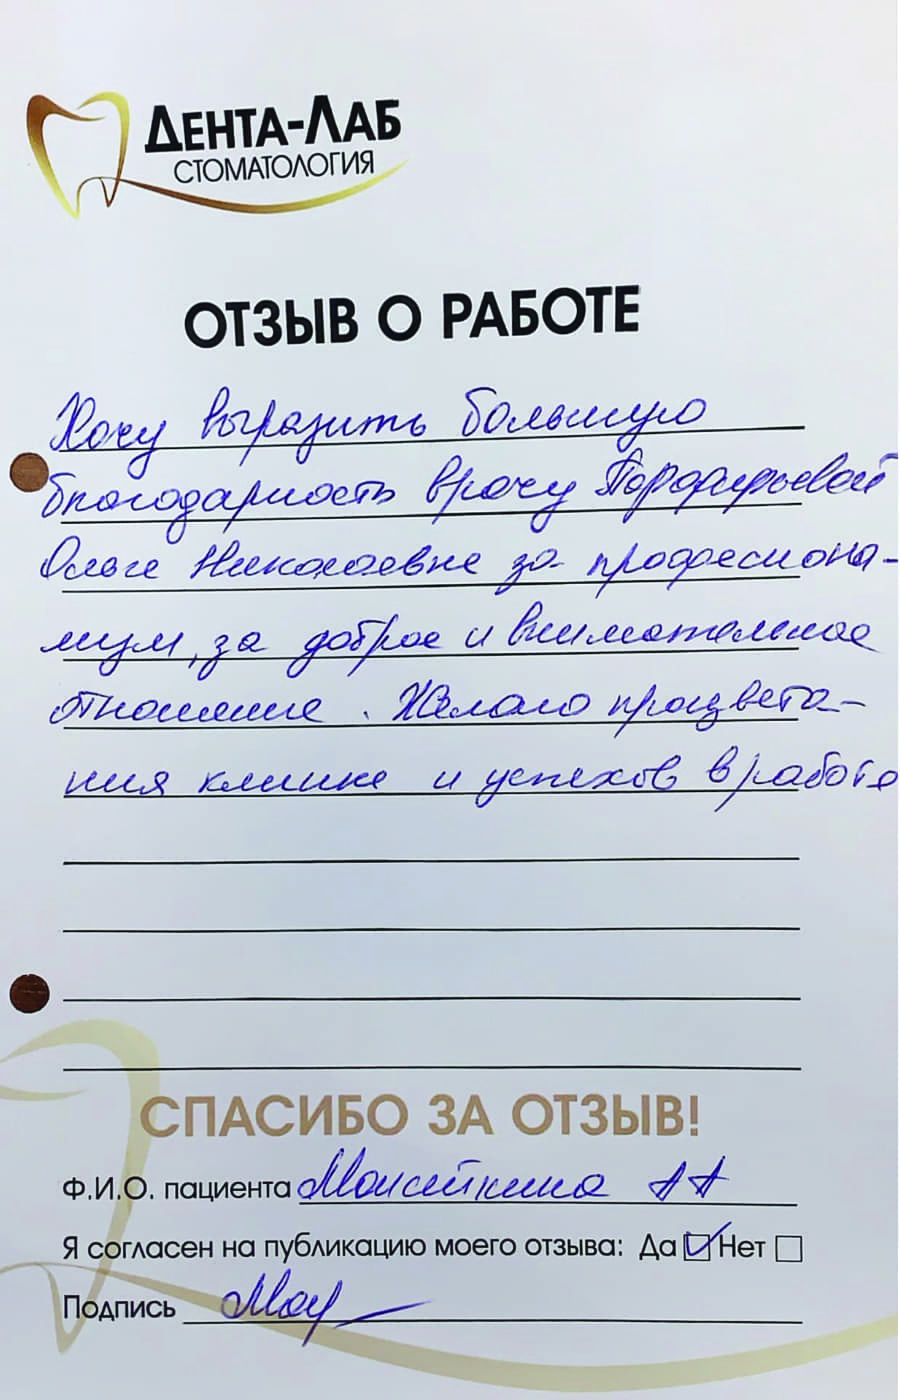 ДЕНТА-ЛАБ
СТОМАТОЛОГИЯ
ОТЗЫВ О РАБОТЕ
Хочу выразить большую
благодарность врачу Порфирьевой
Ольге Николаевне за професиона-
лизм, за доброе и внимательное
отношение. Желаю процвета-
ния клинике и успехов в работе
СПАСИБО ЗА ОТЗЫВ!
Ф.И.О. пациента Моисейкина А А
Я согласен на публикацию моего отзыва: Да Нет
Подпись